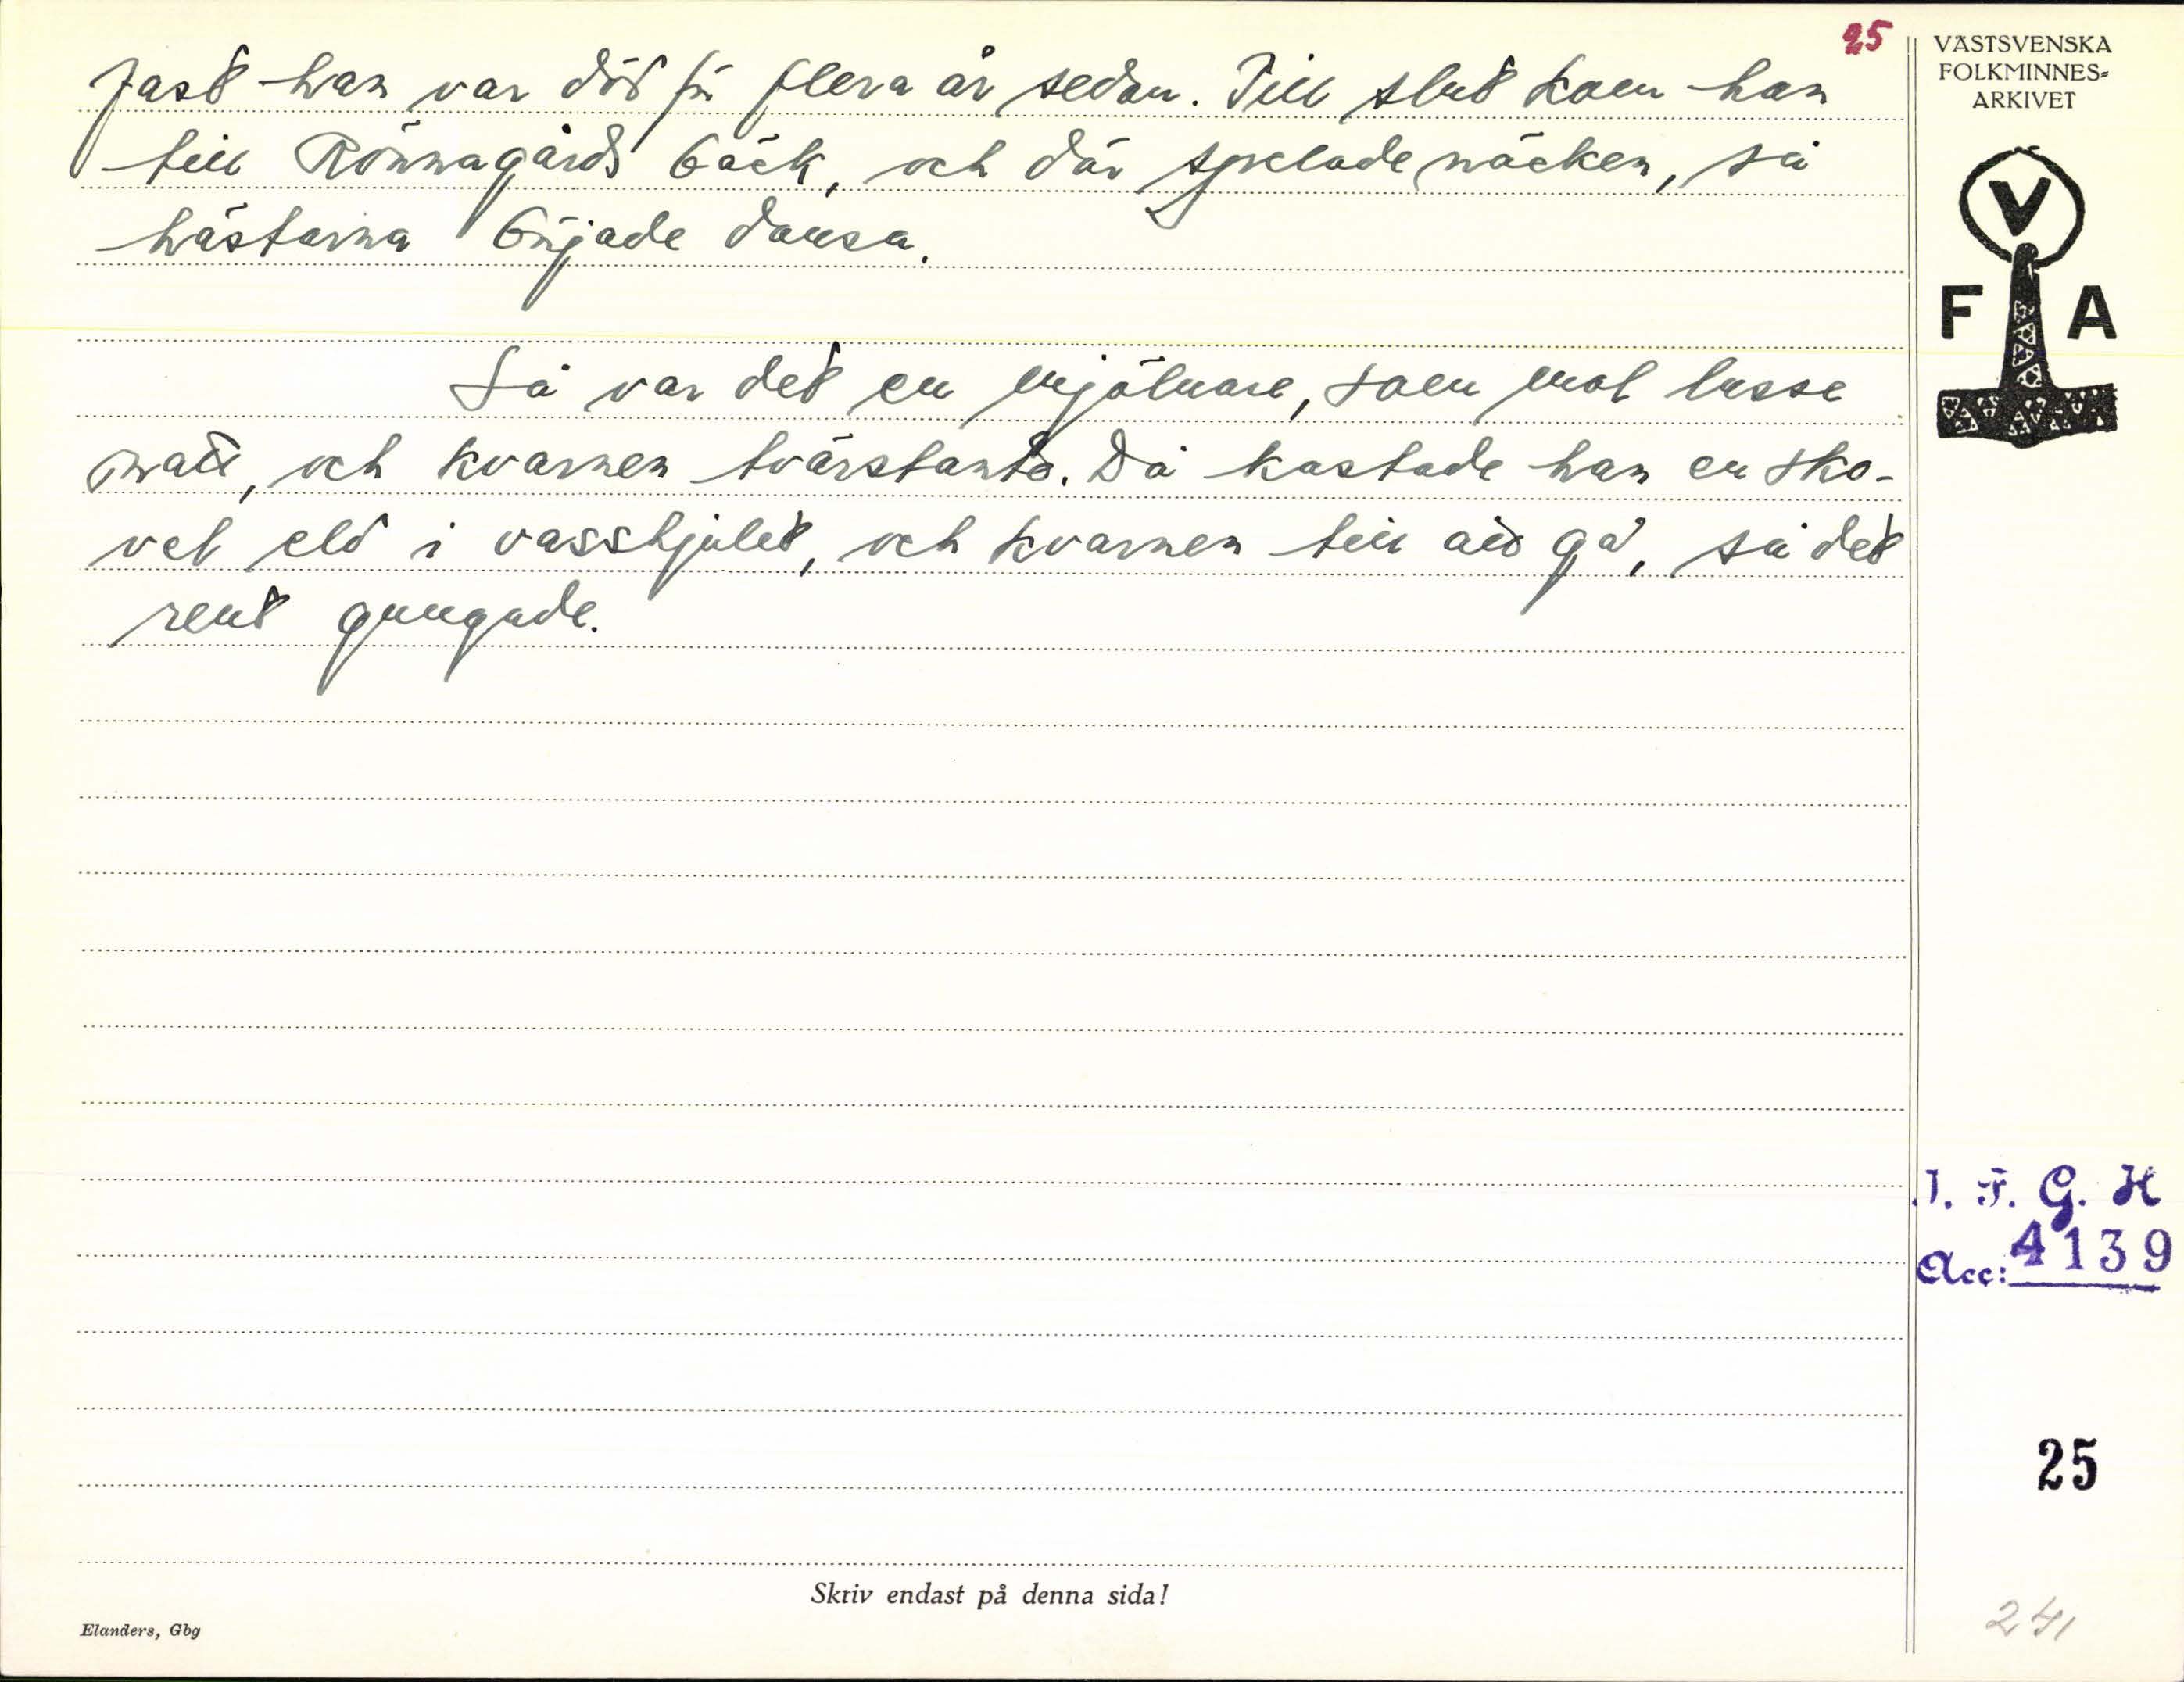 25
fast han var död för flera år sedan. Till slut kom han
till Rönnagårds bäck, och där spelade näcken, så
hästarna började dansa.
Så var det en mjölnare, som mol lusse
natt, och kvarnen tvärstanta. Då kastade han en sko-
vel eld i vasshjulet, och kvarnen till att gå, så det
rent gungade.
VÄSTSVENSKA
FOLKMINNES-
ARKIVET
V
F A
I. F. G. H
Acc: 4139
25
241
Skriv endast på denna sida!
Elanders, Gbg